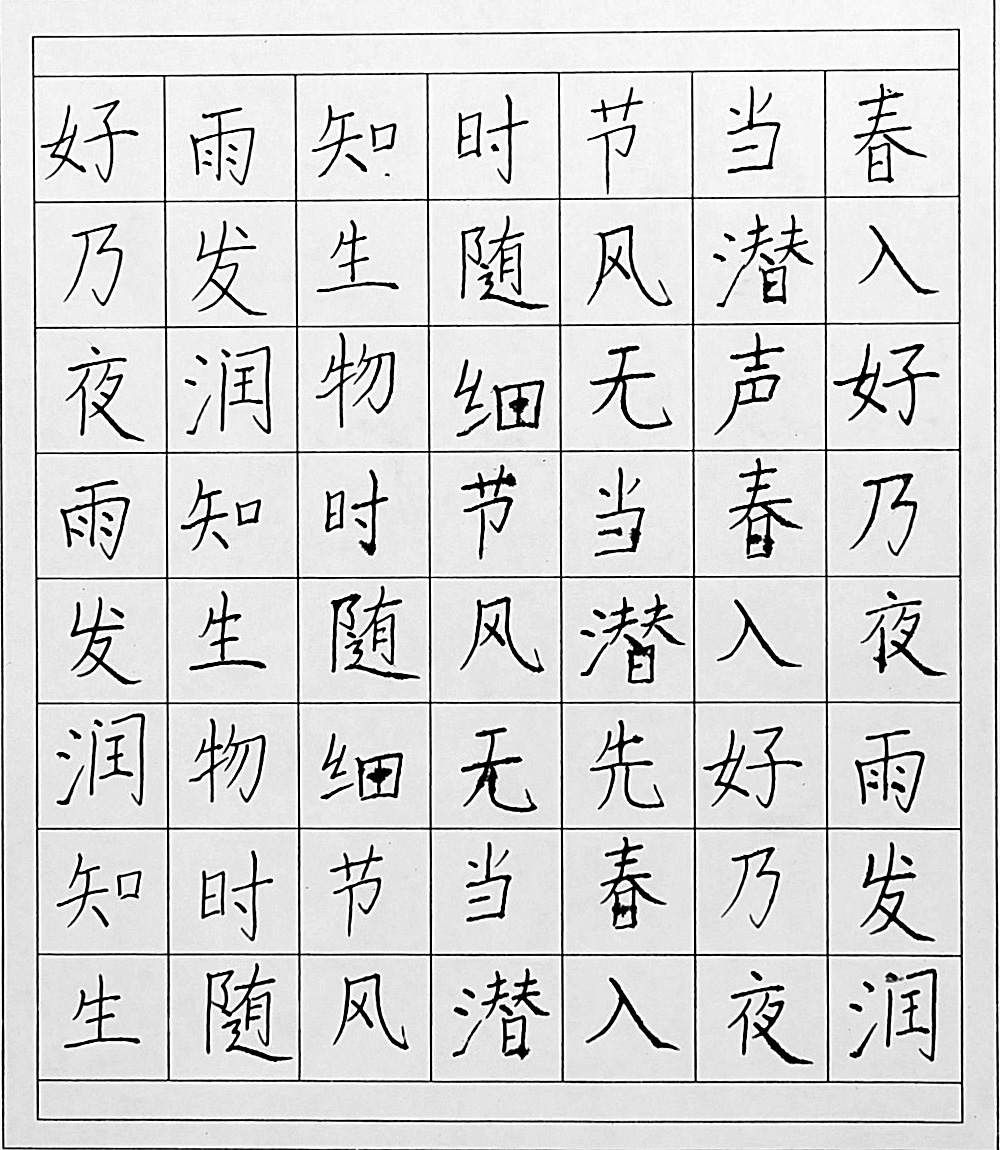 好雨知时节当春
乃发生随风潜入
夜润物细无声好
雨知时节当春乃
发生随风潜入夜
润物细无先好雨
知时节当春乃发
生随风潜入夜润